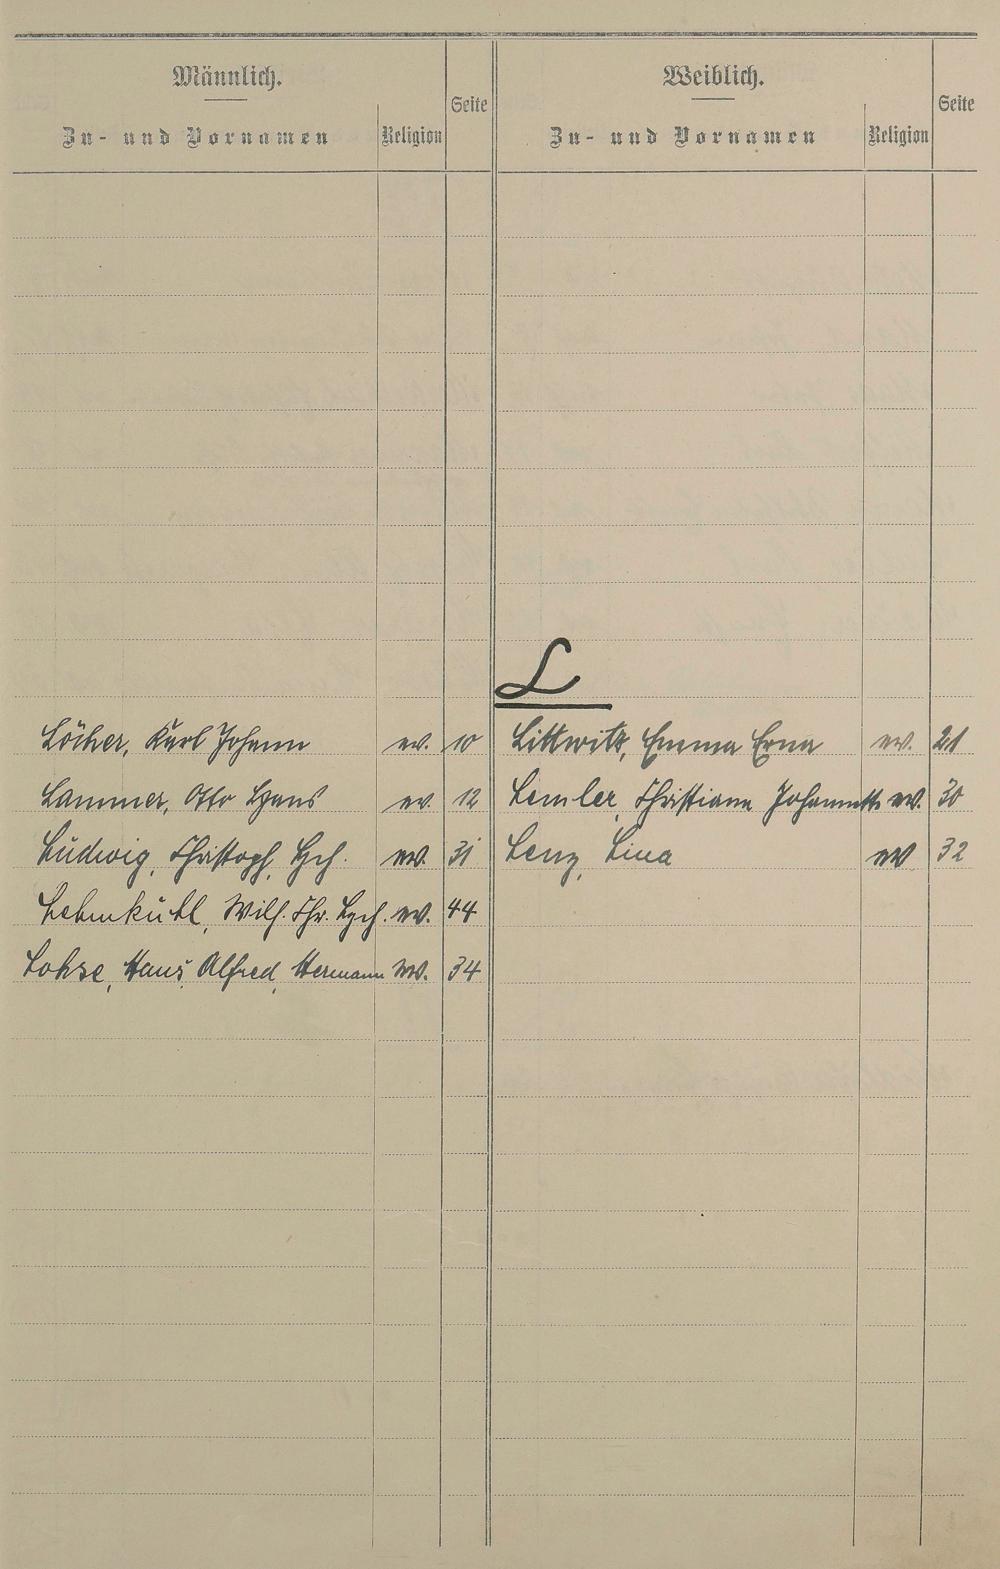 Männlich.
Zu- und Vornamen
Religion
Seite
Weiblich.
Zu- und Vornamen
Religion
Seite
L
Löcher, Karl Johann ev. 10
Littwitz, Emma Erna ev. 21
Lammer, Otto Hans ev. 12
Lemler, Christiane Johannette ev. 30
Ludwig, Christoph, Hch. ev. 31
Lenz, Lina ev 32
Lehmkühl, Wilh. Chr. Hch. ev. 44
Lohse, Hans, Alfred, Hermann ev. 34